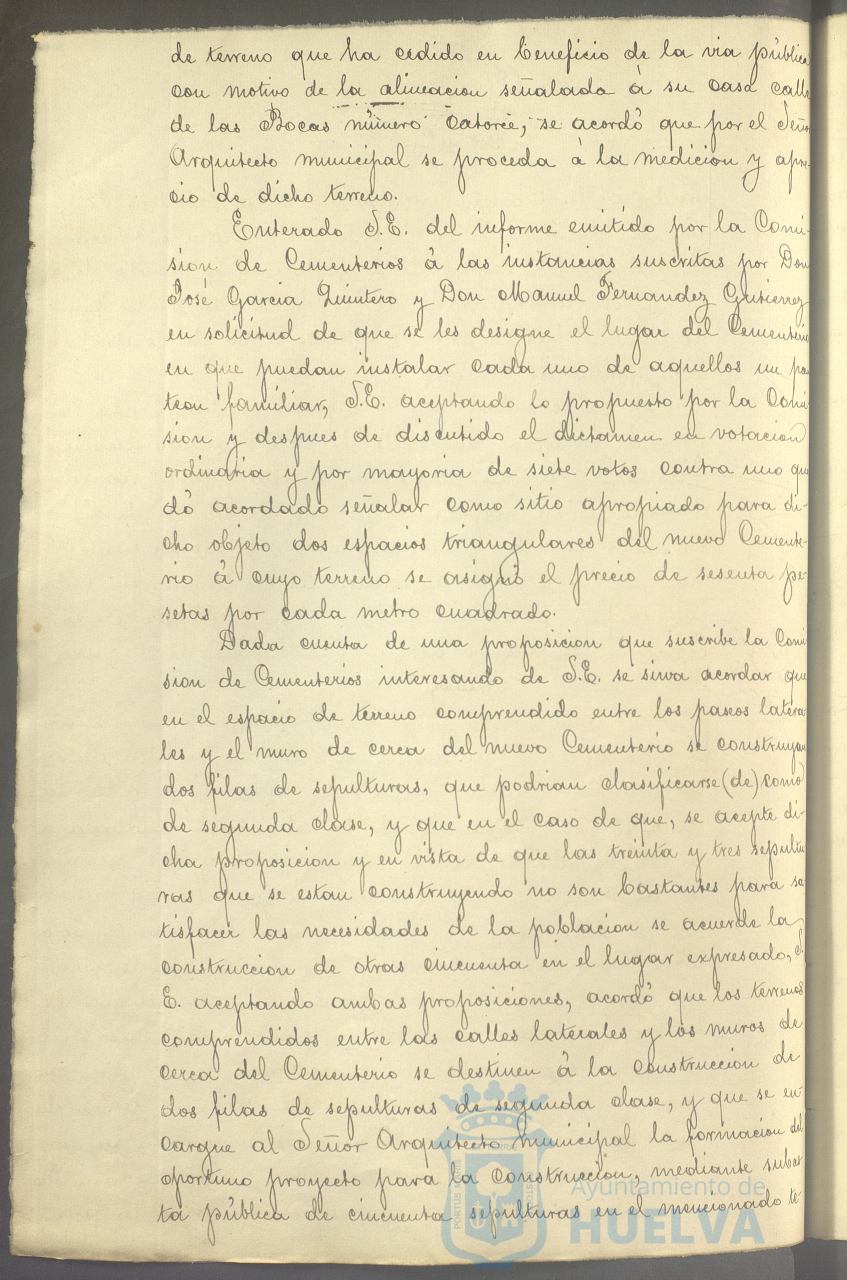 de terreno que ha cedido en beneficio de la via pública
con motivo de la alineacion señalada á su casa calle
de las Bocas número catorce, se acordó que por el Señor
Arquitecto municipal se proceda á la medicion y apre-
cio de dicho terreno.
Enterado S.E. del informe emitido por la Comi-
sion de Cementerios á las instancias suscritas por Don
José Garcia Quintero y Don Manuel Fernandez Gutierrez
en solicitud de que se les designe el lugar del Cementerio
en que puedan instalar cada uno de aquellos un pan
teon familiar, S.E. aceptando lo propuesto por la Comi
sion y despues de discutido el dictamen en votacion
ordinaria y por mayoria de siete votos contra uno que
dó acordado señalar como sitio apropiado para di-
cho objeto dos espacios triangulares del nuevo Cemente-
rio á cuyo terreno se asignó el precio de sesenta pe-
setas por cada metro cuadrado.
Dada cuenta de una proposicion que suscribe la Comi
sion de Cementerios interesando de S.E. se sirva acordar que
en el espacio de terreno comprendido entre los paseos latera
les y el muro de cerca del nuevo Cementerio se construyan
dos filas de sepulturas, que podrian clasificarse (de) como
de segunda clase, y que en el caso de que, se acepte di-
cha proposicion y en vista de que las treinta y tres sepultu
ras que se estan construyendo no son bastantes para sa
tisfacer las necesidades de la poblacion se acuerde la
construccion de otras cincuenta en el lugar expresado, S.
E. aceptando ambas proposiciones, acordó que los terrenos
comprendidos entre las calles laterales y los muros de
cerca del Cementerio se destinen á la construccion de
dos filas de sepulturas de segunda clase, y que se en-
cargue al Señor Arquitecto municipal la formacion del
oportuno proyecto para la construccion, mediante subas
ta pública de cincuenta sepulturas en el mencionado te-
Ayuntamiento de
HUELVA